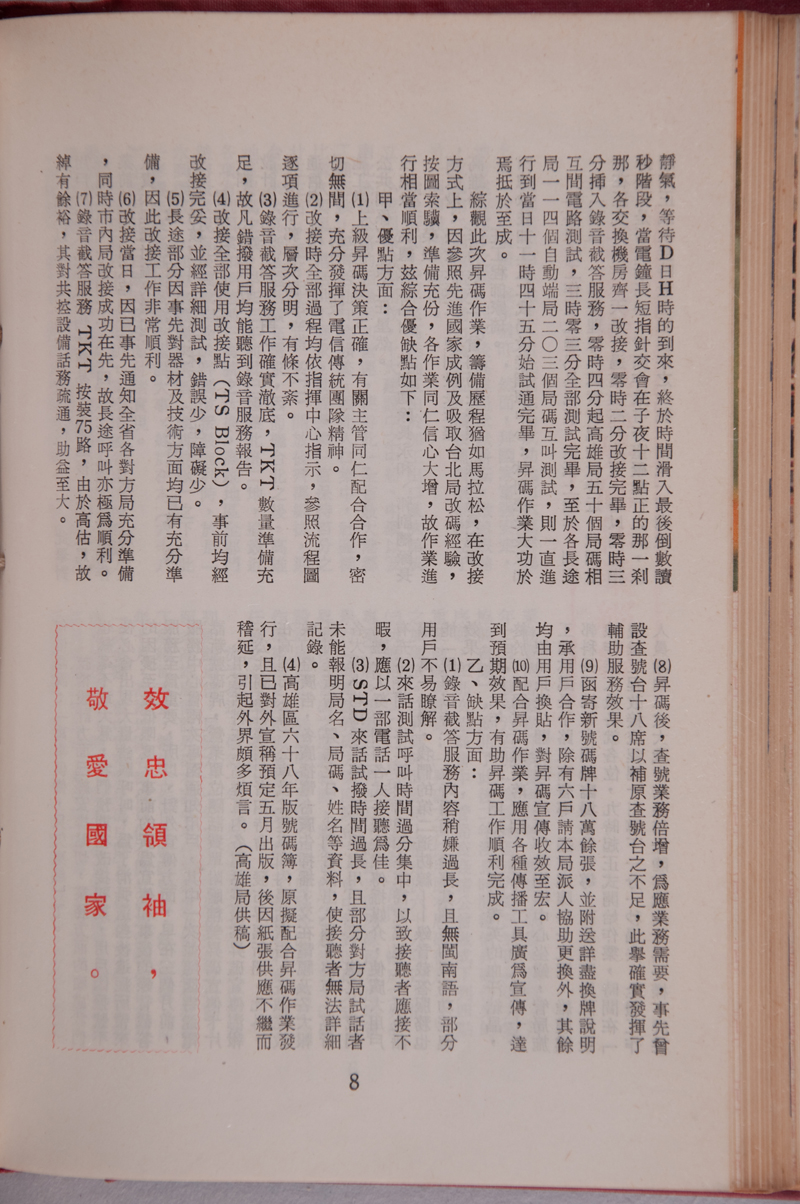 靜氣，等待D日H時的到來，終於時間滑入最後倒數讀
秒階段，當電鐘長短指針交會在子夜十二點正的那一剎
那，各交換機房齊一改接，零時二分改接完畢，零時三
分揷入錄音截答服務，零時四分起高雄局五十個局碼相
互間電路測試，三時零三分全部測試完畢，至於各長途
局一一四個自動端局二〇三個局碼互叫測試，則一直進
行到當日十一時四十五分始試通完畢，昇碼作業大功於
焉抵於至成。
綜觀此次昇碼作業，籌備歷程猶如馬拉松，在改接
方式上，因參照先進國家成例及吸取台北局改碼經驗，
按圖索驥，準備充份，各作業同仁信心大增，故作業進
行相當順利，茲綜合優缺點如下：
甲、優點方面：
(1)上級昇碼決策正確，有關主管同仁配合合作，密
切無間，充分發揮了電信傳統團隊精神。
(2)改接時全部過程均依指揮中心指示，參照流程圖
逐項進行，層次分明，有條不紊。
(3)錄音截答服務工作確實澈底，TKT數量準備充
足，故凡錯撥用戶均能聽到錄音服務報告。
(4)改接全部使用改接點（TS Block），事前均經
改接完妥，並經詳細測試，錯誤少，障礙少。
(5)長途部分因事先對器材及技術方面均已有充分準
備，因此改接工作非常順利。
(6)改接當日，因已事先通知全省各對方局充分準備
，同時市內局改接成功在先，故長途呼叫亦極爲順利。
(7)錄音截答服務 TKT 按裝75路，由於高估，故
綽有餘裕，其對共控設備話務疏通，助益至大。
(8)昇碼後，查號業務倍增，爲應業務需要，事先曾
設查號台十八席以補原查號台之不足，此舉確實發揮了
輔助服務效果。
(9)函寄新號碼牌十八萬餘張，並附送詳盡換牌說明
，承用戶合作，除有六戶請本局派人協助更換外，其餘
均由用戶換貼，對昇碼宣傳收效至宏。
(10)配合昇碼作業，應用各種傳播工具廣爲宣傳，達
到預期效果，有助昇碼工作順利完成。
乙、缺點方面：
(1)錄音截答服務內容稍嫌過長，且無閩南語，部分
用戶不易瞭解。
(2)來話測試呼叫時間過分集中，以致接聽者應接不
暇，應以一部電話一人接聽爲佳。
(3)STD來話試撥時間過長，且部分對方局試話者
未能報明局名、局碼、姓名等資料，使接聽者無法詳細
記錄。
(4)高雄區六十八年版號碼簿，原擬配合昇碼作業發
行，且已對外宣稱預定五月出版，後因紙張供應不繼而
稽延，引起外界頗多煩言。（高雄局供稿）
效忠領袖，
敬愛國家。
8